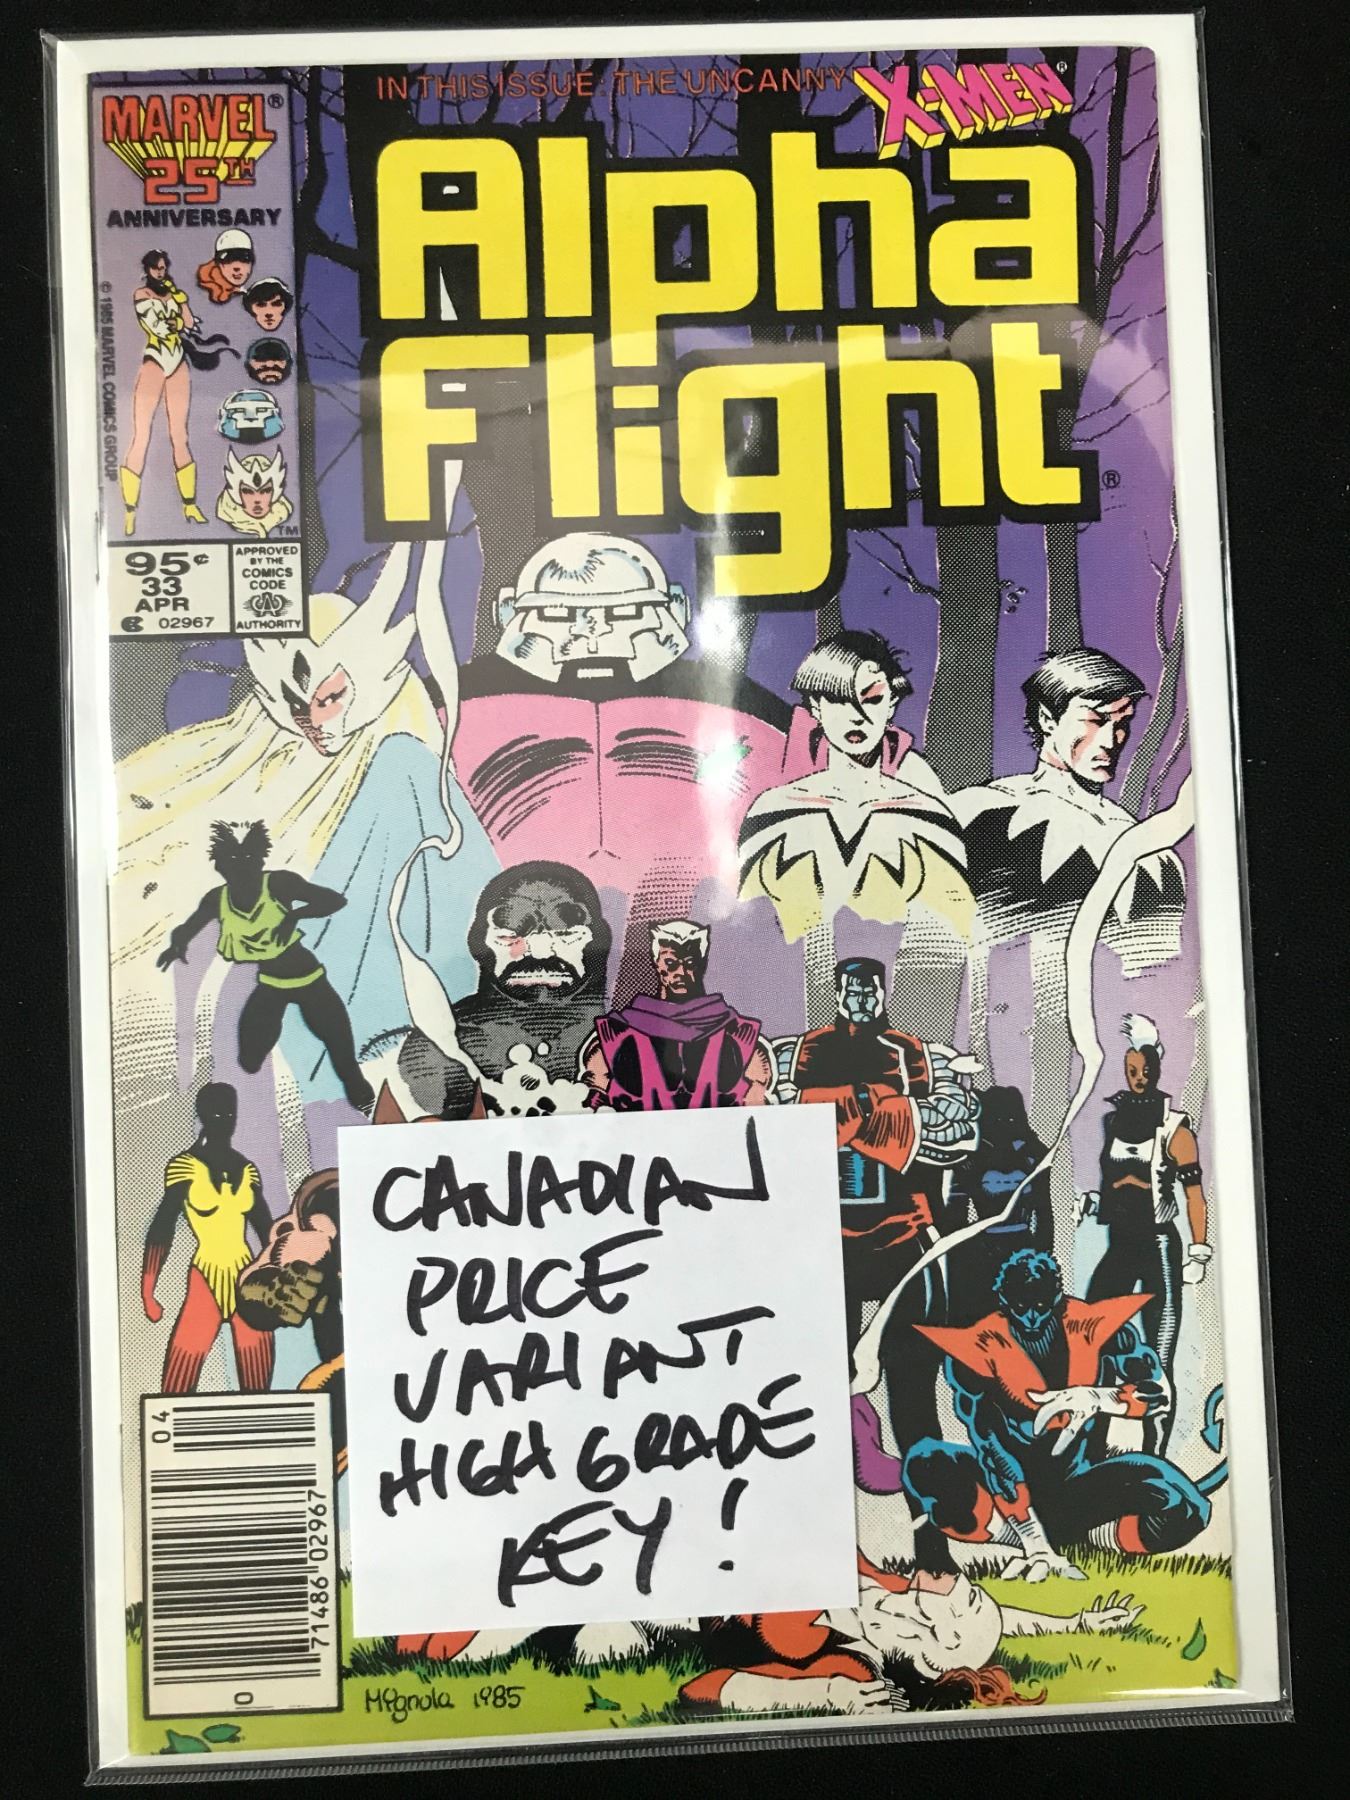 IN THIS ISSUE: THE UNCANNY X-MEN®
MARVEL®
25TH
ANNIVERSARY
Alpha
Flight®
© 1985 MARVEL COMICS GROUP
TM
95¢
33
APR
02967
APPROVED
BY THE
COMICS
CODE
CA
AUTHORITY
CANADIAN
PRICE
VARIANT
HIGH GRADE
KEY!
04
71486 02967
0
Mignola 1985